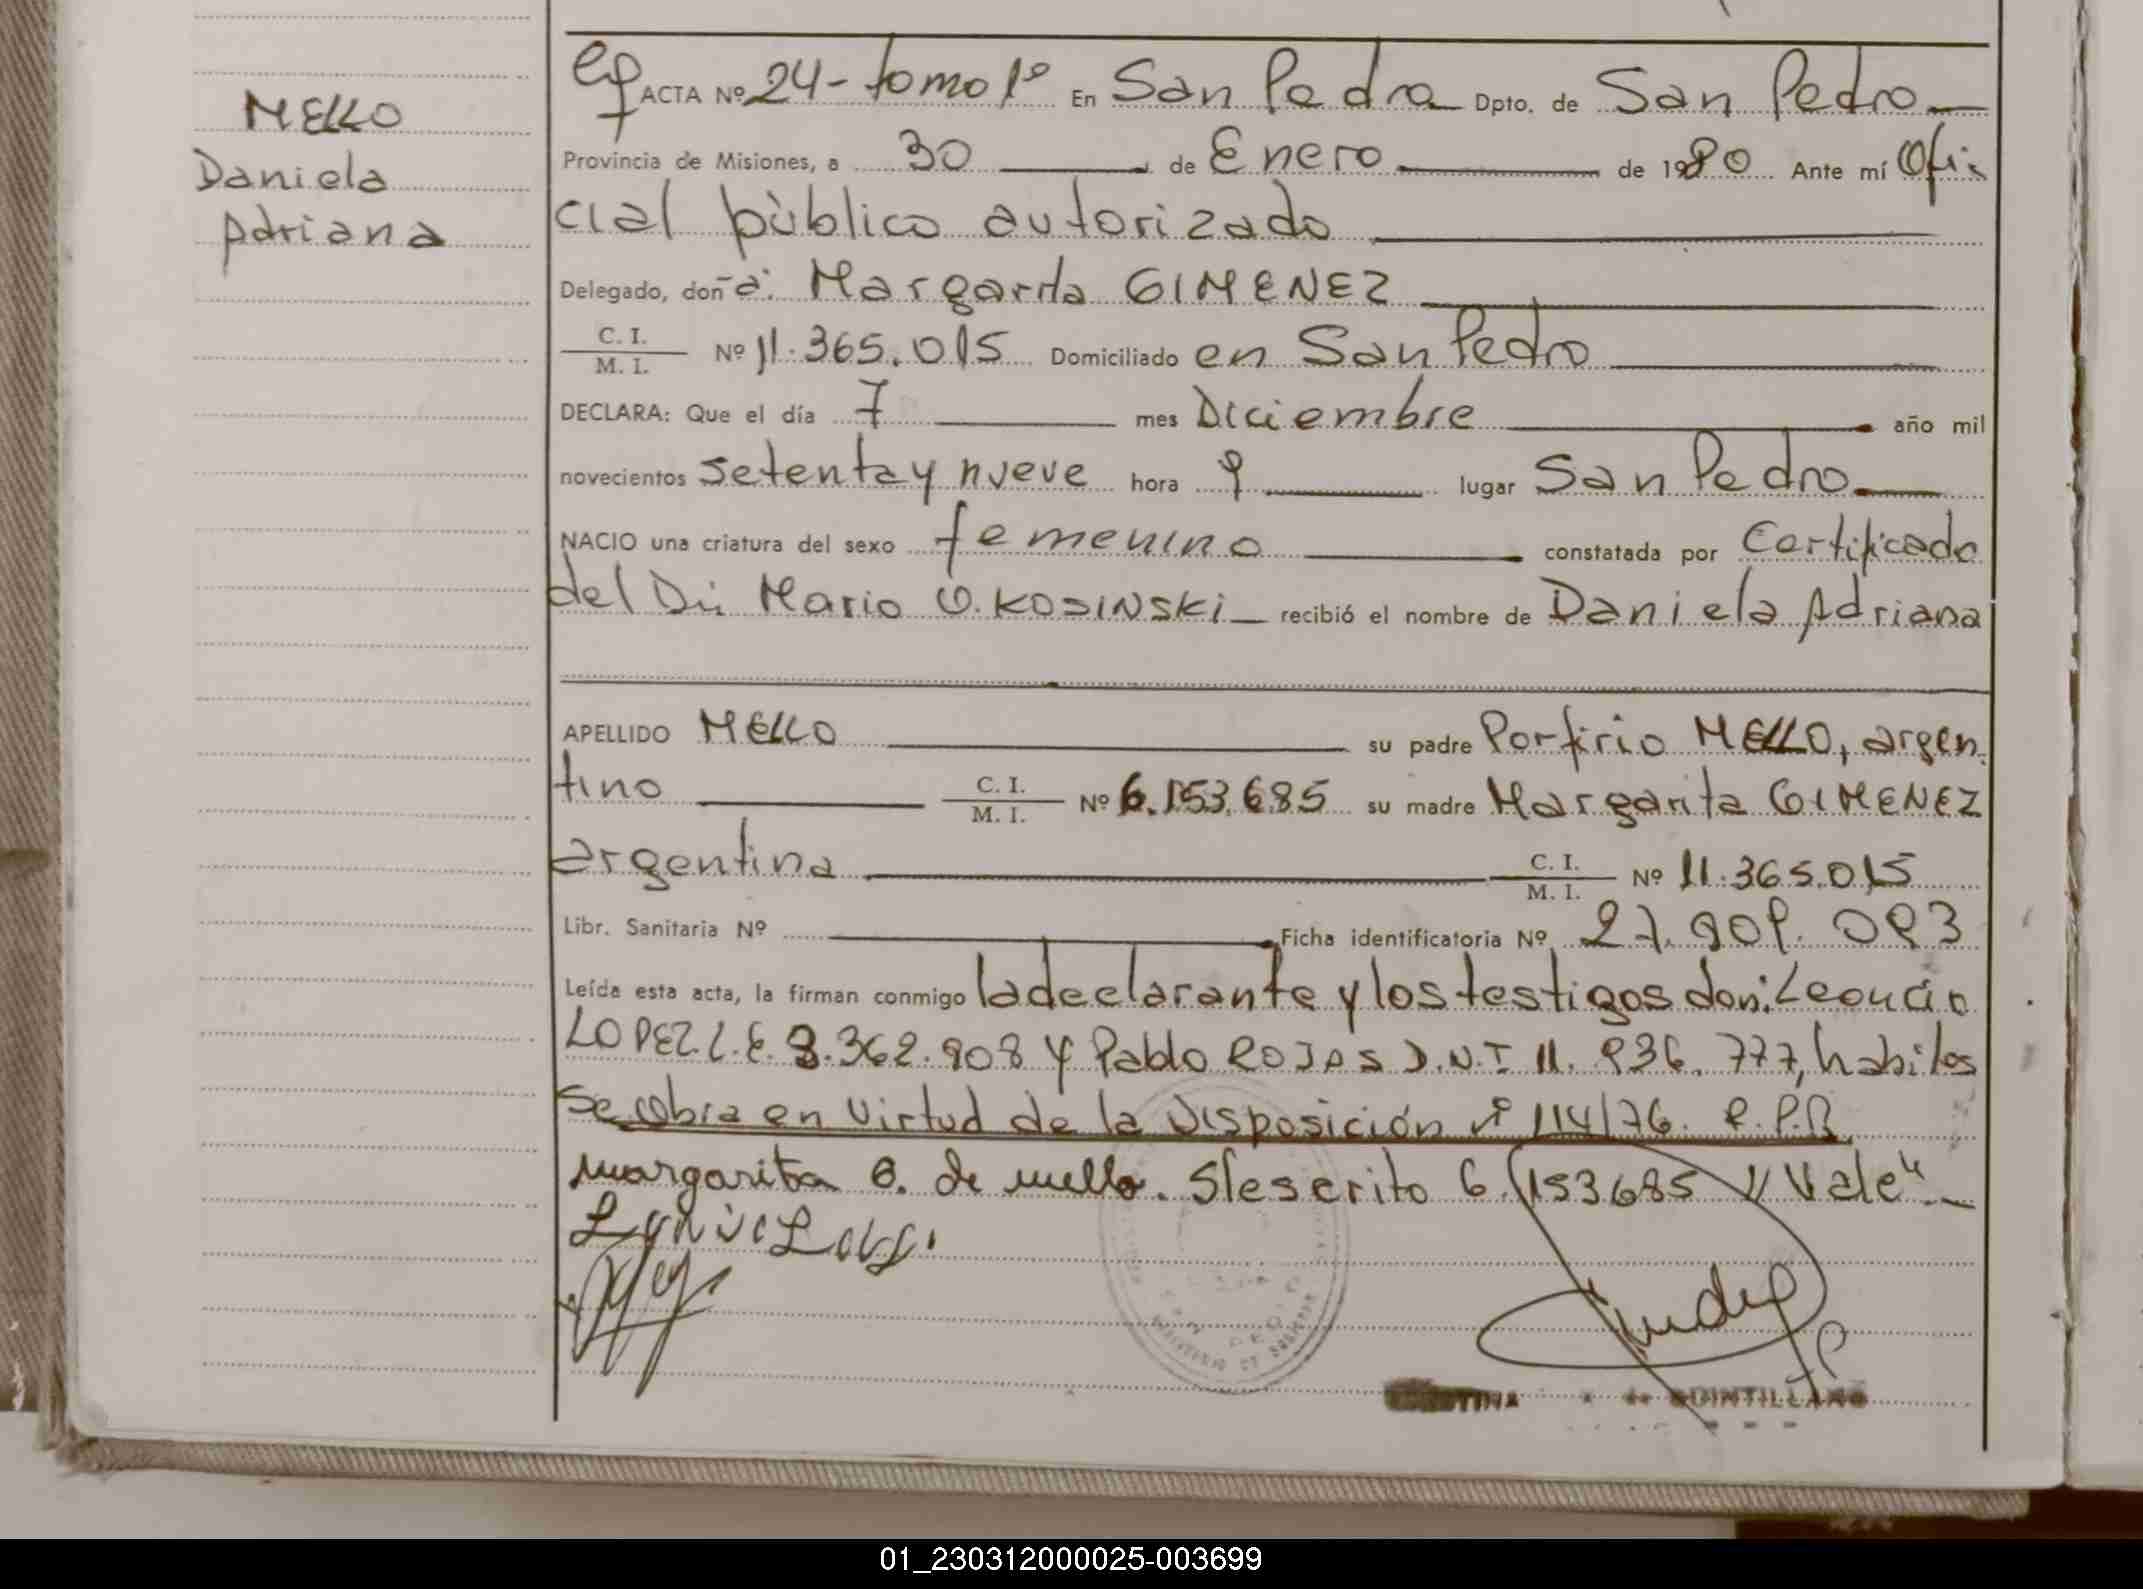 MELLO
Daniela
Adriana
ACTA Nº 24 - tomo 1º En San Pedro Dpto. de San Pedro
Provincia de Misiones, a 30 de Enero de 1980 Ante mí Ofi-
cial pùblico autorizado
Delegado, doña: Margarita GIMENEZ
C. I.
M. I. Nº 11.365.015 Domiciliado en San Pedro
DECLARA: Que el día 7 mes Diciembre año mil
novecientos setenta y nueve hora 9 lugar San Pedro
NACIO una criatura del sexo femenino constatada por Certificado
del Dr. Mario O. KOSINSKI recibió el nombre de Daniela Adriana
APELLIDO MELLO su padre Porfirio MELLO, argen-
tino C. I.
M. I. Nº 6.153.685 su madre Margarita GIMENEZ
argentina C. I.
M. I. Nº 11.365.015
Libr. Sanitaria Nº Ficha identificatoria Nº 27.909.093
Leída esta acta, la firman conmigo la declarante y los testigos don: Leoncio
LOPEZ L.E. 3.362.908 y Pablo ROJAS D.N.I 11.936.777, habiles
Se cobra en virtud de la Disposición nº 114/76. R.P.R
margarita G. de mello. S/escrito 6.153685 "Vale"
QUINTILLANO
01_230312000025-003699